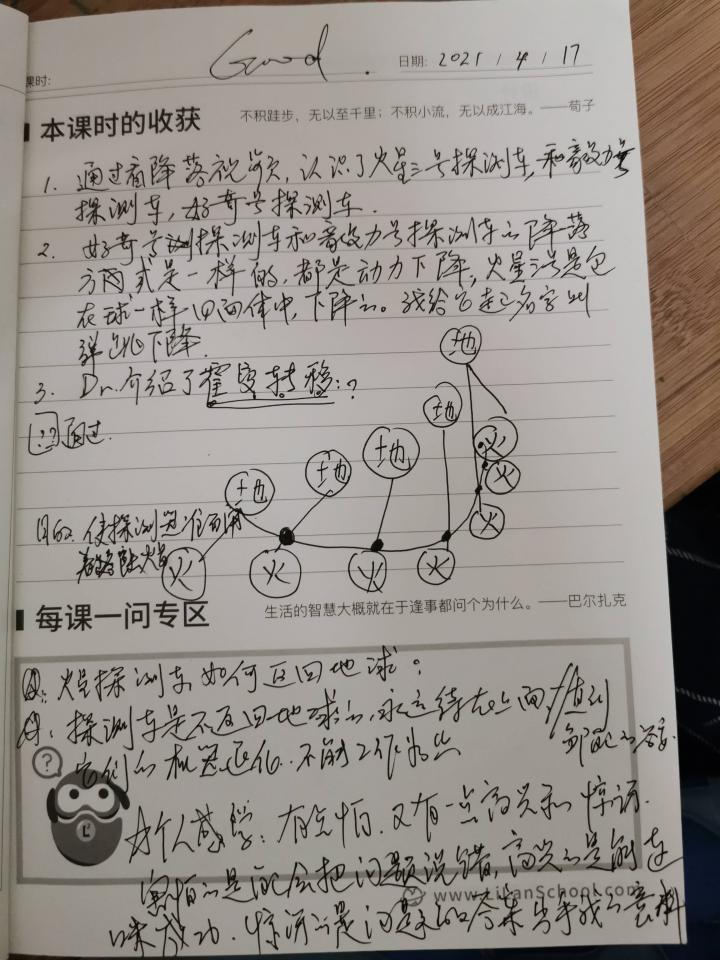 Good.
课时:
日期: 2021 / 4 / 17
本课时的收获
不积跬步，无以至千里；不积小流，无以成江海。——荀子
1. 通过看降落视频，认识了火星三号探测车，和毅力号
探测车，好奇号探测车.
2. 好奇号探测车和毅力号探测车的降落
方式是一样的，都是动力下降，火星三号是包
在球一样四面体中，下降的。我给它起了名字叫
弹跳下降.
3. Dr.介绍了霍曼转移:?
?? 通过.
地
地
地
地
地
火
火
火
火
火
火
火
目的. 使探测器准确
着陆火星
每课一问专区
生活的智慧大概就在于逢事都问个为什么。——巴尔扎克
Q: 火星探测车如何返回地球?
A: 探测车是不返回地球的,永远待在上面,直到
它们的机器退化.不能工作为止
?
个人感觉:有点怕.又有一点高兴和惊讶.
害怕的是我会把问题说错,高兴的是能连
www.LikanSchool.com
成功.惊讶的是问题的答案出乎我的意料